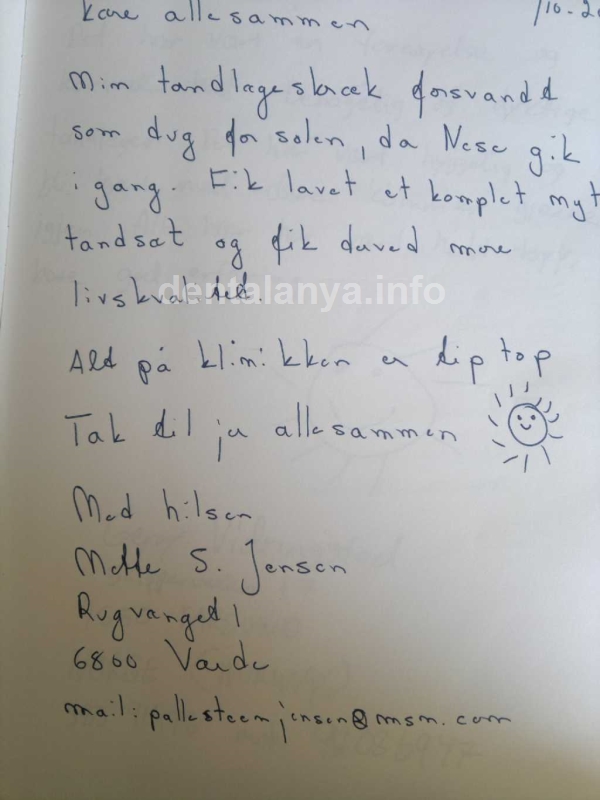 Kære allesammen /10-2
Min tandlægeskræk forsvandt
som dug for solen, da Nese gik
i gang. Fik lavet et komplet nyt
tandsæt og fik derved mere
livskvalitet.
dentalanya.info
Alt på klinikken er tip top
Tak til jer allesammen
Med hilsen
Mette S. Jensen
Rugvænget 1
6800 Varde
mail: pallesteenjensen@msn.com